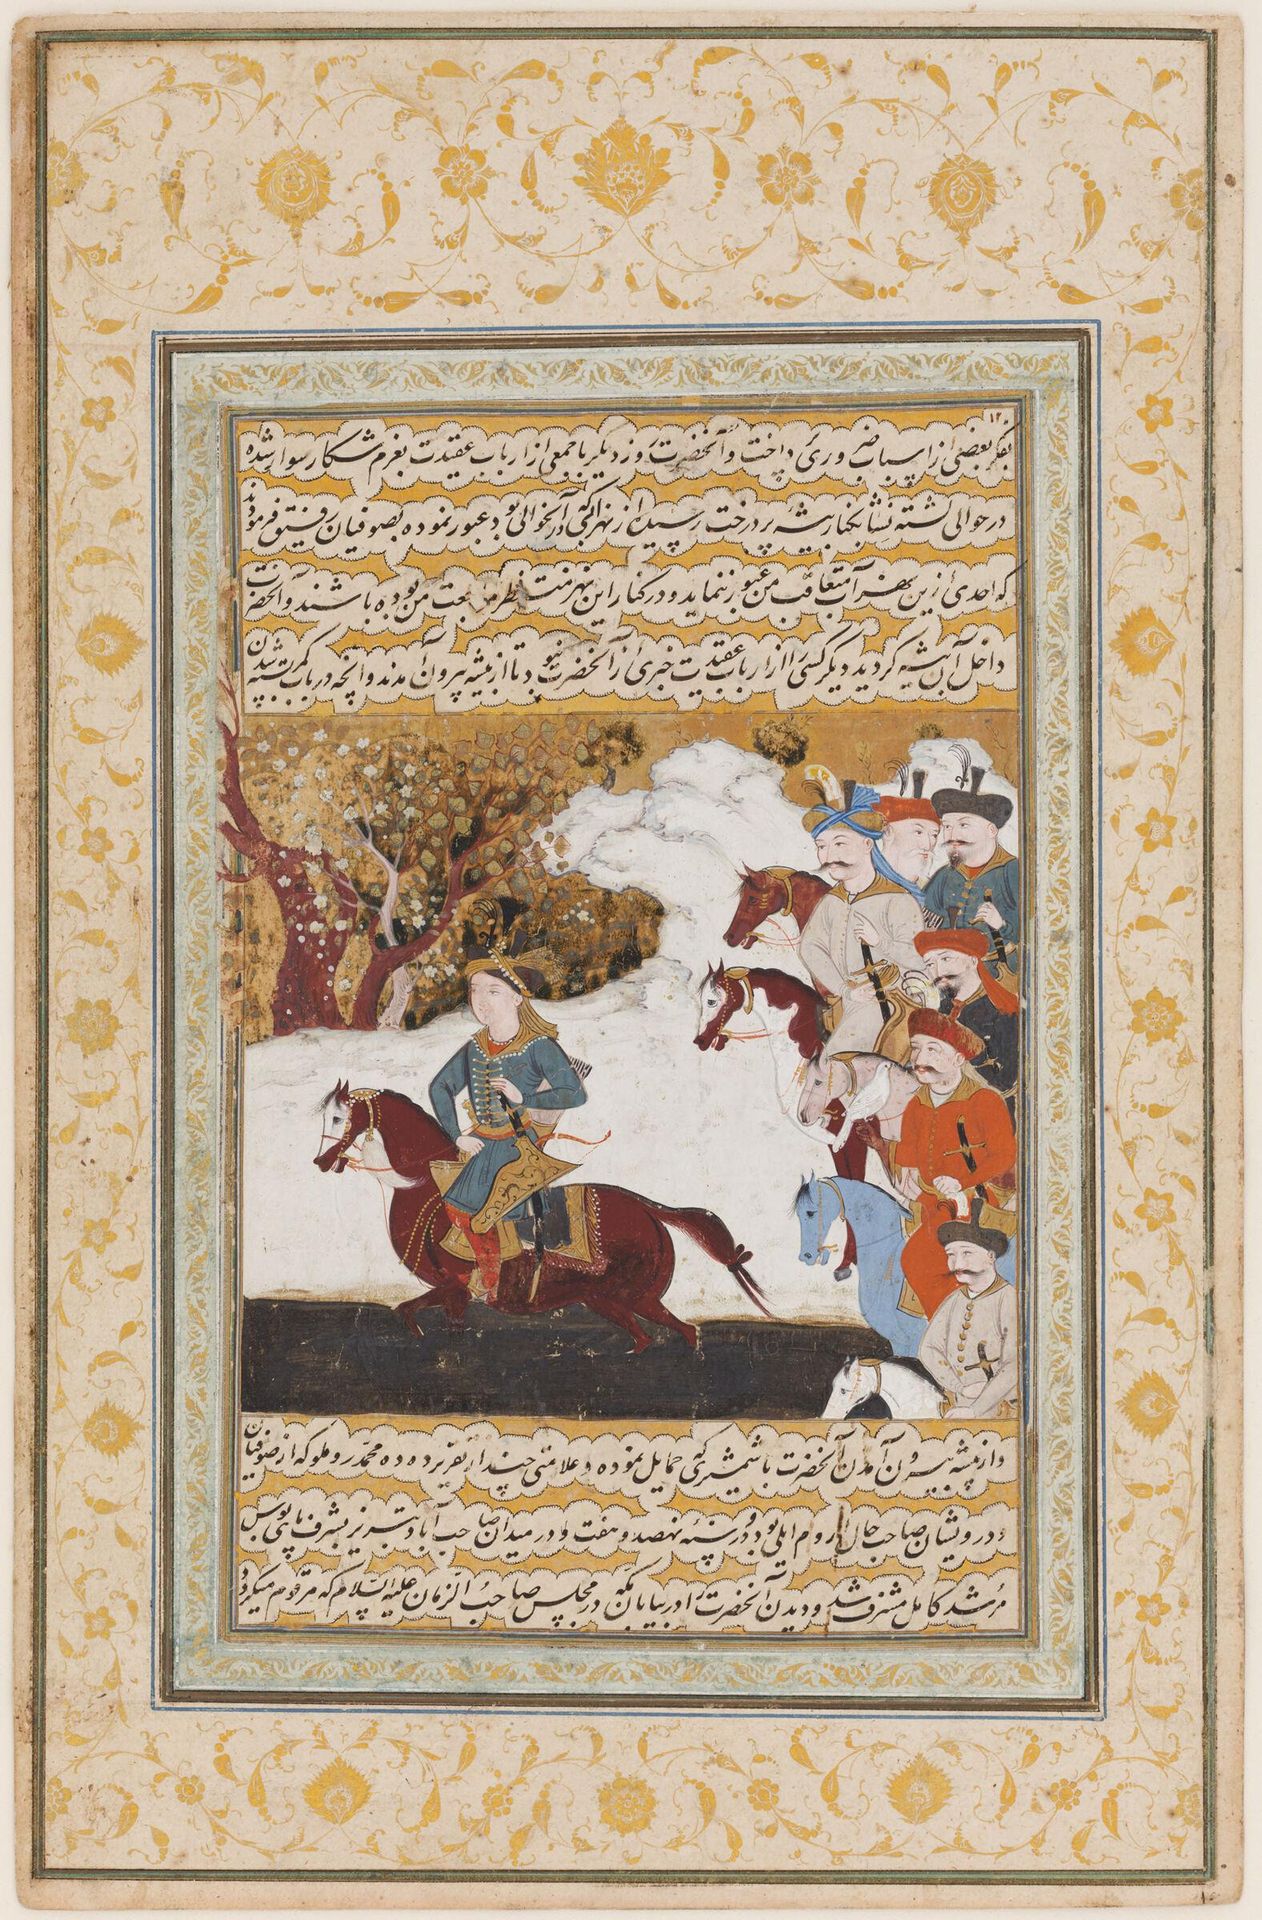 ۱۲
بفکر بعضی از اسباب ضروری پرداخت و آنحضرت روز دیگر با جمعی از ارباب عقیدت بعزم شکار سوار شده
در حوالی لشته نشا بکنار بیشه پر درخت رسیده از نهر آبی که در آن حوالی بود عبور نموده بصوفیان رفیق فرمودند
که احدی ازین نهر آب متعاقب من عبور ننماید و در کنار این نهر منتظر مراجعت من بوده باشند و آنحضرت
داخل آن بیشه گردید دیگر کسی را از ارباب عقیدت خبری از آنحضرت نبود تا از بیشه بیرون آمدند و آنچه در باب کمر بسته شدن
و از بیشه بیرون آمدن آنحضرت با شمشیری که حمایل نموده و علامتی چند از تقریر ده ده محمد روملو که از صوفیان
و درویشان صاحب حال روم ایلی بود و در سنه نهصد و هفت در میدان صاحب آباد تبریز بشرف پای بوس
مرشد کامل مشرف شد و دیدن آنحضرت را در بیابان مکه در مجلس صاحب الزمان علیه السلام که مرقوم میگردد